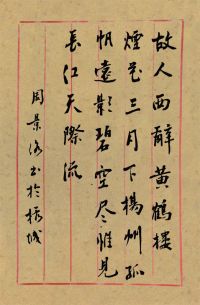 故人西辭黃鶴樓
煙花三月下揚州孤
帆遠影碧空尽惟見
長江天際流
周景洛书於榕城